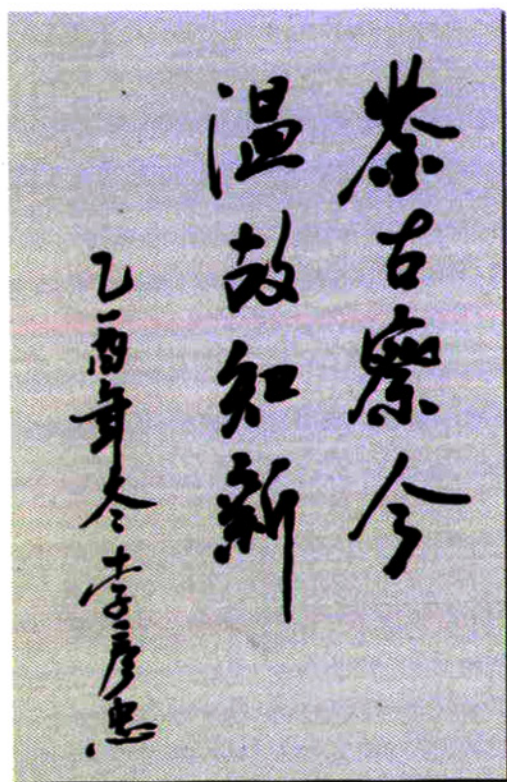 鉴古察今
温故知新
乙酉年冬李彦忠